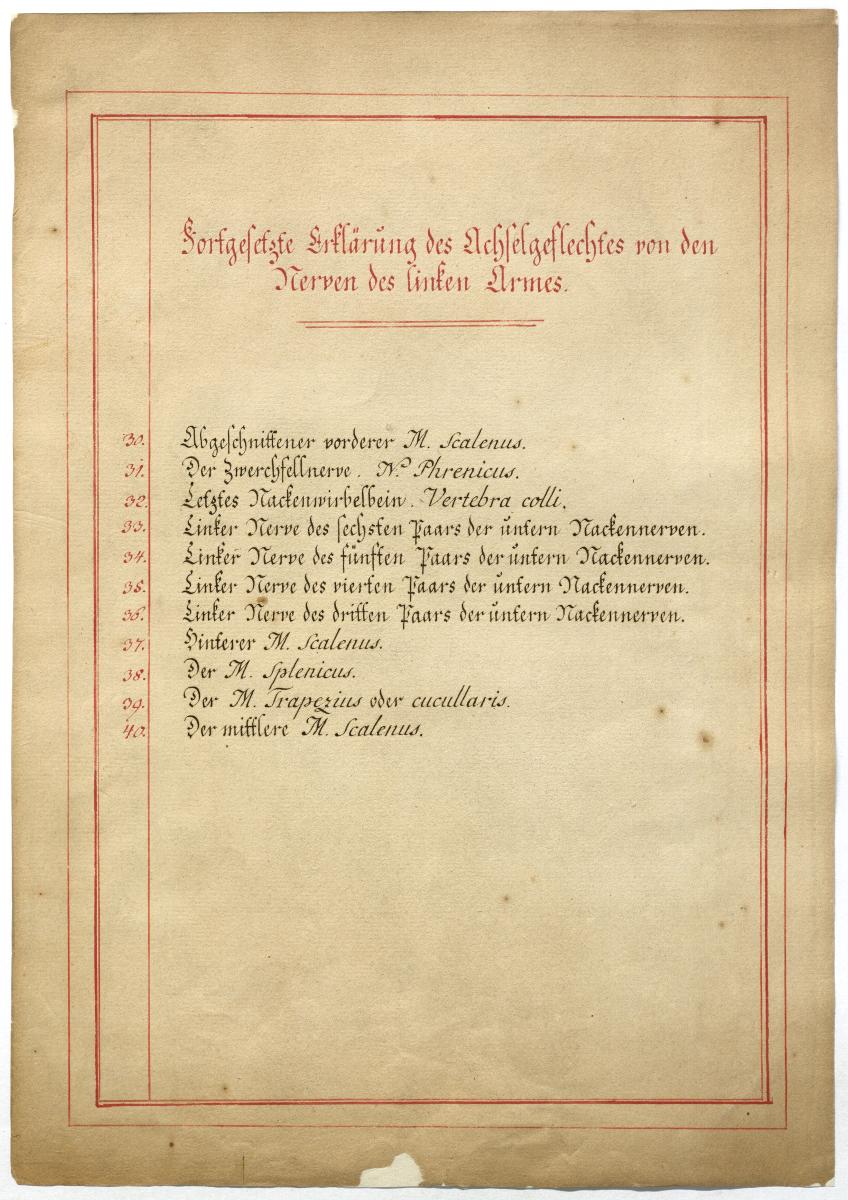 Fortgesetzte Erklärung des Achselgeflechtes von den
Nerven des linken Armes.
30. Abgeschnittener vorderer M. Scalenus.
31. Der Zwerchfellnerve. N.º Phrenicus.
32. Letztes Nackenwirbelbein. Vertebra colli.
33. Linker Nerve des sechsten Paars der untern Nackennerven.
34. Linker Nerve des fünften Paars der untern Nackennerven.
35. Linker Nerve des vierten Paars der untern Nackennerven.
36. Linker Nerve des dritten Paars der untern Nackennerven.
37. Hinterer M. Scalenus.
38. Der M. Splenicus.
39. Der M. Trapezius oder cucullaris.
40. Der mittlere M. Scalenus.